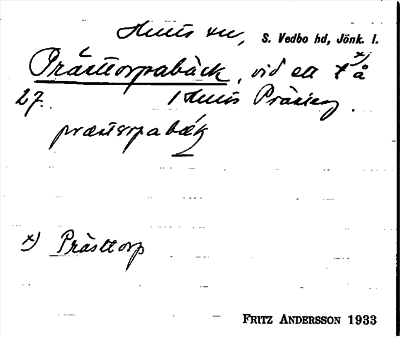 Hults sn, S. Vedbo hd, Jönk. l.
Prästtorpabäck, vid ett t x) å
27. Hults Prästeg.
præstɛrpabæk
x) Prästtorp
FRITZ ANDERSSON 1933